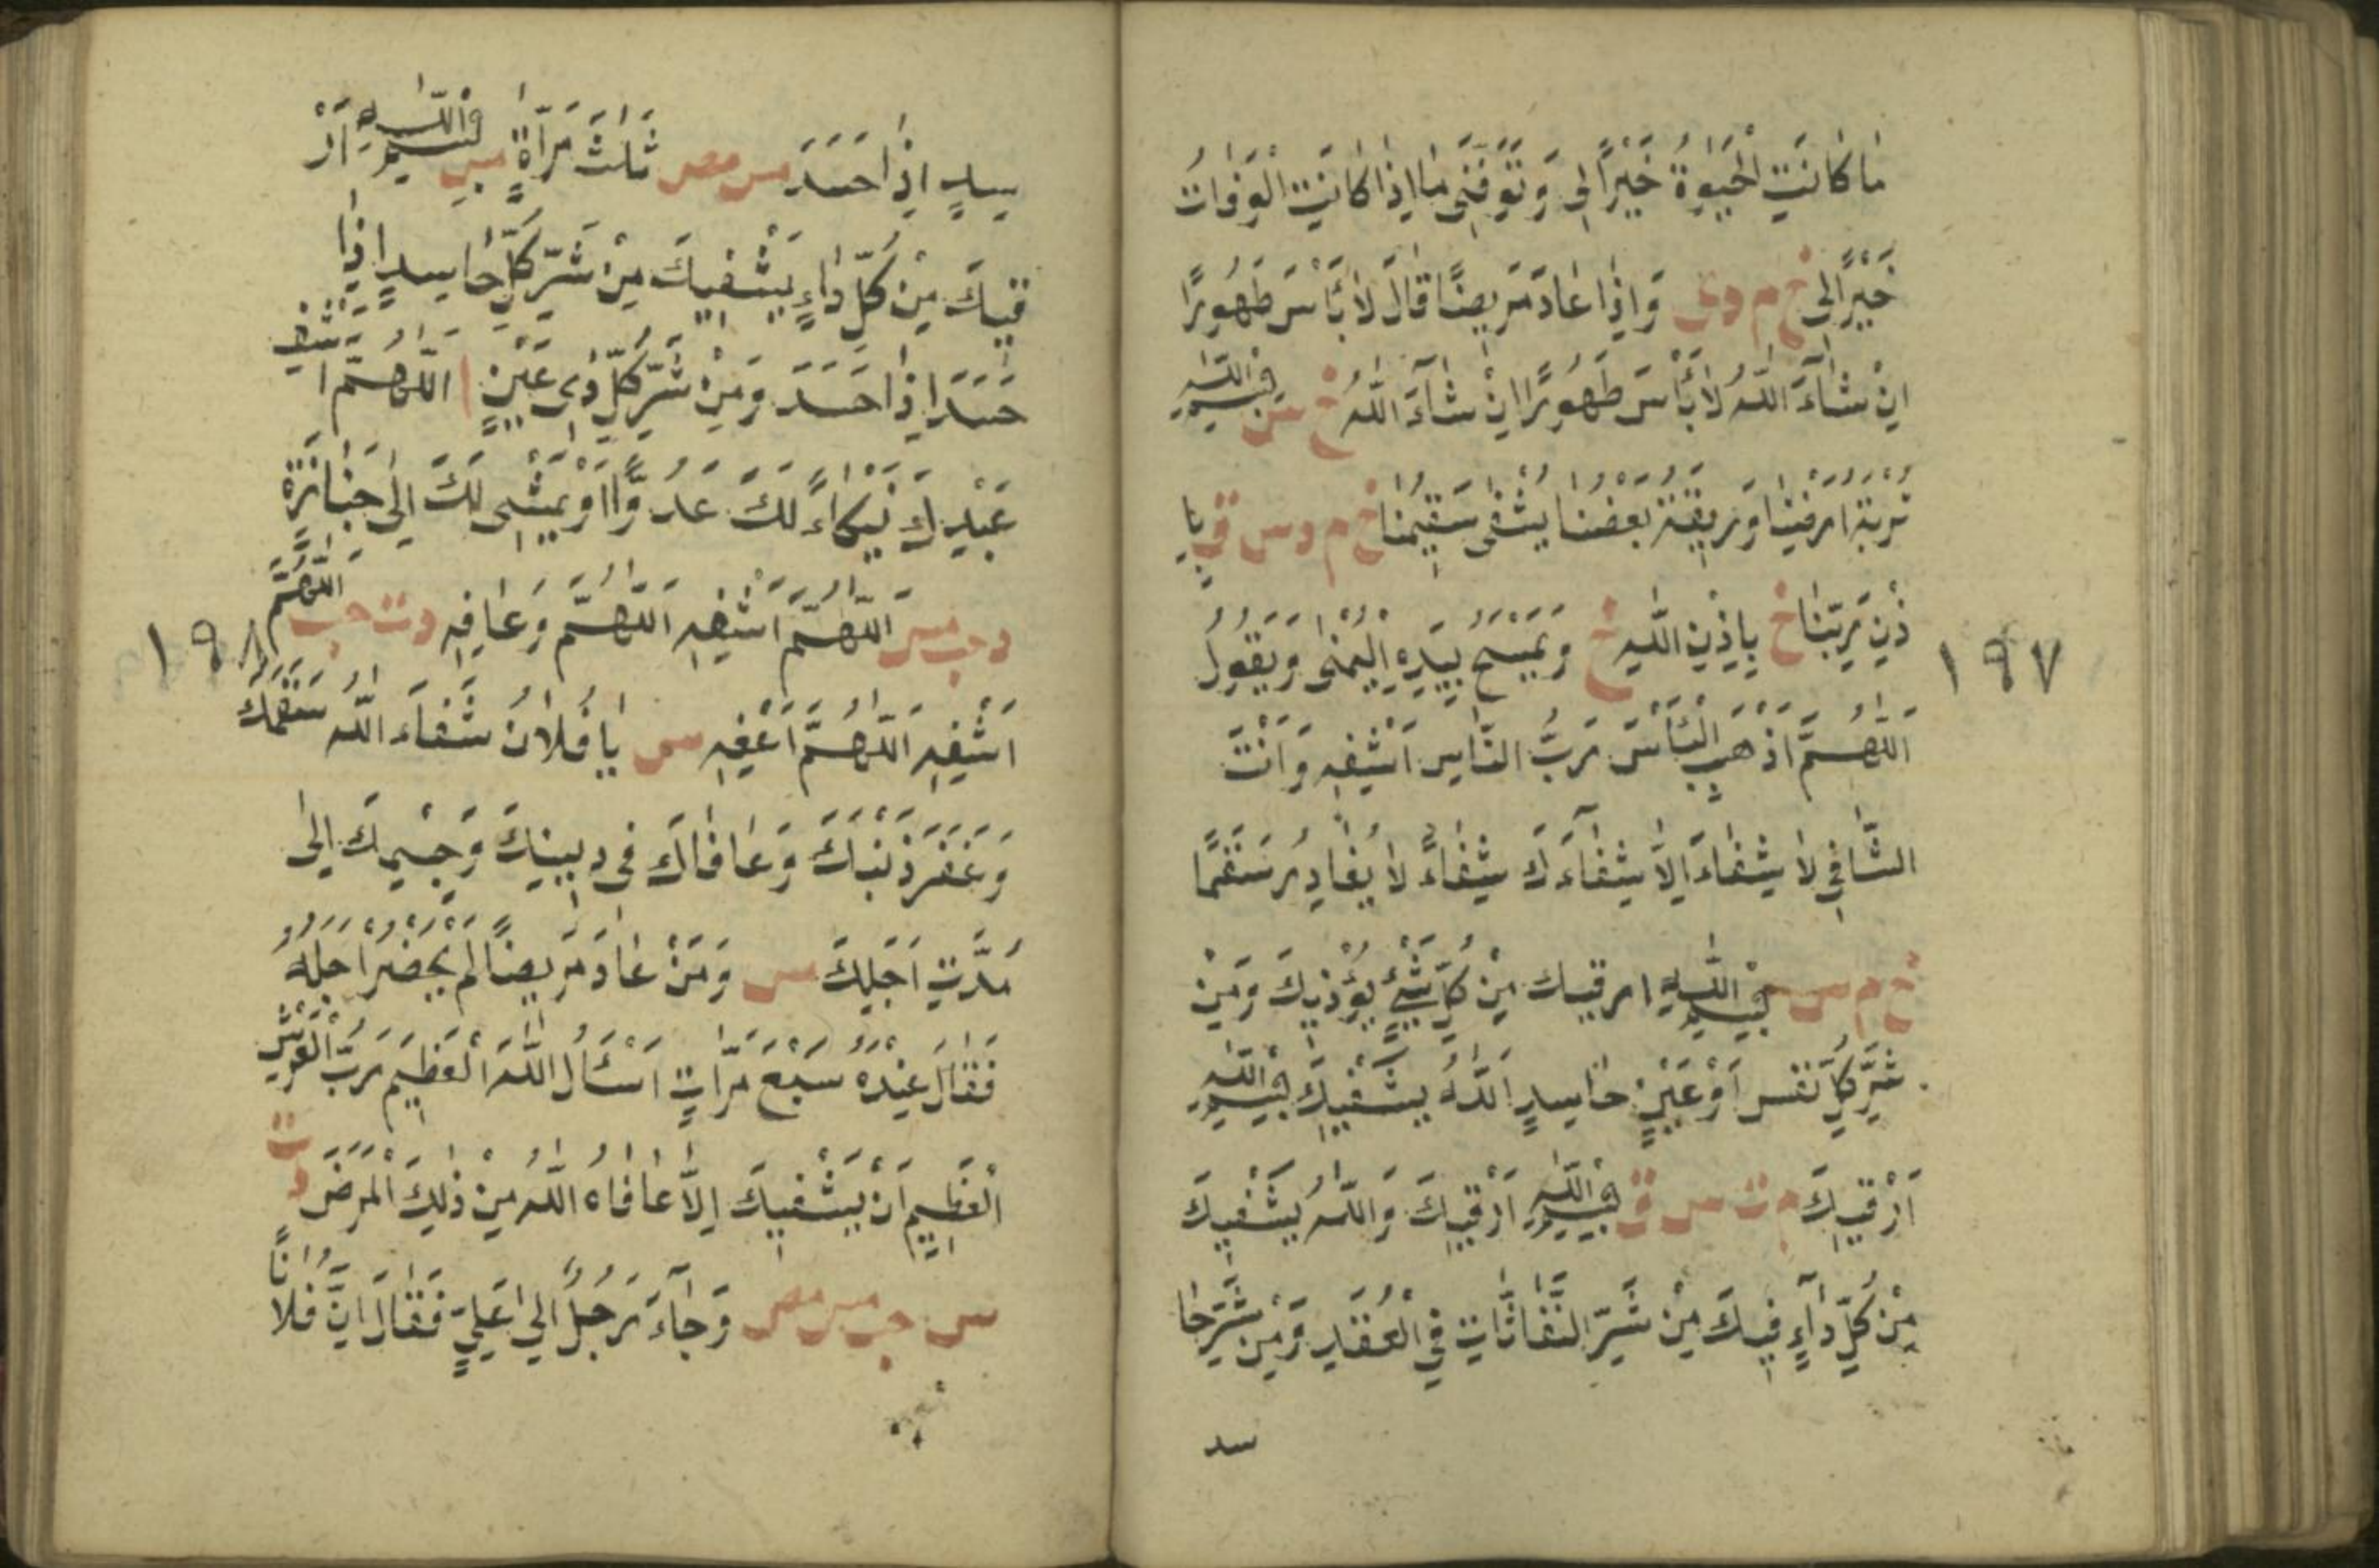 مَا كَانَتِ الْحَيٰوةُ خَيْرًا لِى وَتَوَفَّنِى مَا اِذَا كَانَتِ الْوَفَاتُ
خَيْرًا لِى خ م د ت وَاِذَا عَادَ مَرِيضًا قَالَ لَا بَأْسَ طَهُورًا
اِنْ شَآءَ اللّٰهُ لَا بَأْسَ طَهُورًا اِنْ شَآءَ اللّٰهُ خ س بِسْمِ اللّٰهِ
تُرْبَةُ اَرْضِنَا وَرِيقَةُ بَعْضُنَا يُشْفٰى سَقِيمُنَا خ م د س ق بِا
ذْنِ رَبِّنَا خ بِاِذْنِ اللّٰهِ خ وَيَمْسَحُ بِيَدِهِ الْيُمْنٰى وَيَقُولُ
١٩٧
اَللّٰهُمَّ اَذْهِبِ الْبَأْسَ رَبَّ النَّاسِ اَشْفِهِ وَاَنْتَ
الشَّافِى لَا شِفَاءَ اِلَّا شِفَآءَكَ شِفَاءً لَا يُغَادِرُ سَقَمًا
خ م س بِسْمِ اللّٰهِ ارقيك مِنْ كُلِّ شَيْءٍ يُؤْذِيكَ وَمِنْ
شَرِّ كُلِّ نَفْسٍ اَوْ عَيْنٍ حَاسِدٍ اَللّٰهُ يَشْفِيكَ بِسْمِ اللّٰهِ
اَرْقِيكَ م ت س ق بِسْمِ اللّٰهِ اَرْقِيكَ وَاللّٰهُ يَشْفِيكَ
مِنْ كُلِّ دَآءٍ فِيكَ مِنْ شَرِّ النَّفَّاثَاتِ فِى الْعُقَدِ وَمِنْ شَرِّ حَا
سد
سِدٍ اِذَا حَسَدَ مس مص ثَلٰثَ مَرَّاةٍ مس بِسْمِ اللّٰهِ اَرْ
قِيكَ مِنْ كُلِّ دَاءٍ يَشْفِيكَ مِنْ شَرِّ كُلِّ حَاسِدٍ اِذَا
حَسَدَ اِذَا حَسَدَ وَمِنْ شَرِّ كُلِّ ذِى عَيْنٍ ا اَللّٰهُمَّ اشْفِ
عَبْدِكَ يَنْكَاءُ لَكَ عَدُوًّا اَوْ يَمْشِى لَكَ اِلٰى جَنَازَةٍ
د حب مس اَللّٰهُمَّ اشْفِهِ اَللّٰهُمَّ وَعَافِهِ د ت حب اَللّٰهُمَّ
١٩٨
اشْفِهِ اَللّٰهُمَّ اَعْفِهِ س يَا فُلَانُ شَفَاءَ اللّٰهُ سَقَمَكَ
وَغَفَرَ ذَنْبَكَ وَعَافَاكَ فِى دِينِكَ وَجِسْمِكَ اِلٰى
مُدَّتِ اَجَلِكَ مس وَمَنْ عَادَ مَرِيضًا لَمْ يَحْضُرْ اَجَلُهُ
فَقَالَ عِنْدَهُ سَبْعَ مَرَّاتٍ اَسْئَلُ اللّٰهَ الْعَظِيمَ رَبَّ الْعَرْشِ
الْعَظِيمِ اَنْ يَشْفِيكَ اِلَّا عَافَاهُ اللّٰهُ مِنْ ذٰلِكَ الْمَرَضَ د ت
س حب مس مص وَجَآءَ رَجُلٌ اِلٰى عَلِيٍّ فَقَالَ اِنَّ فُلَانًا